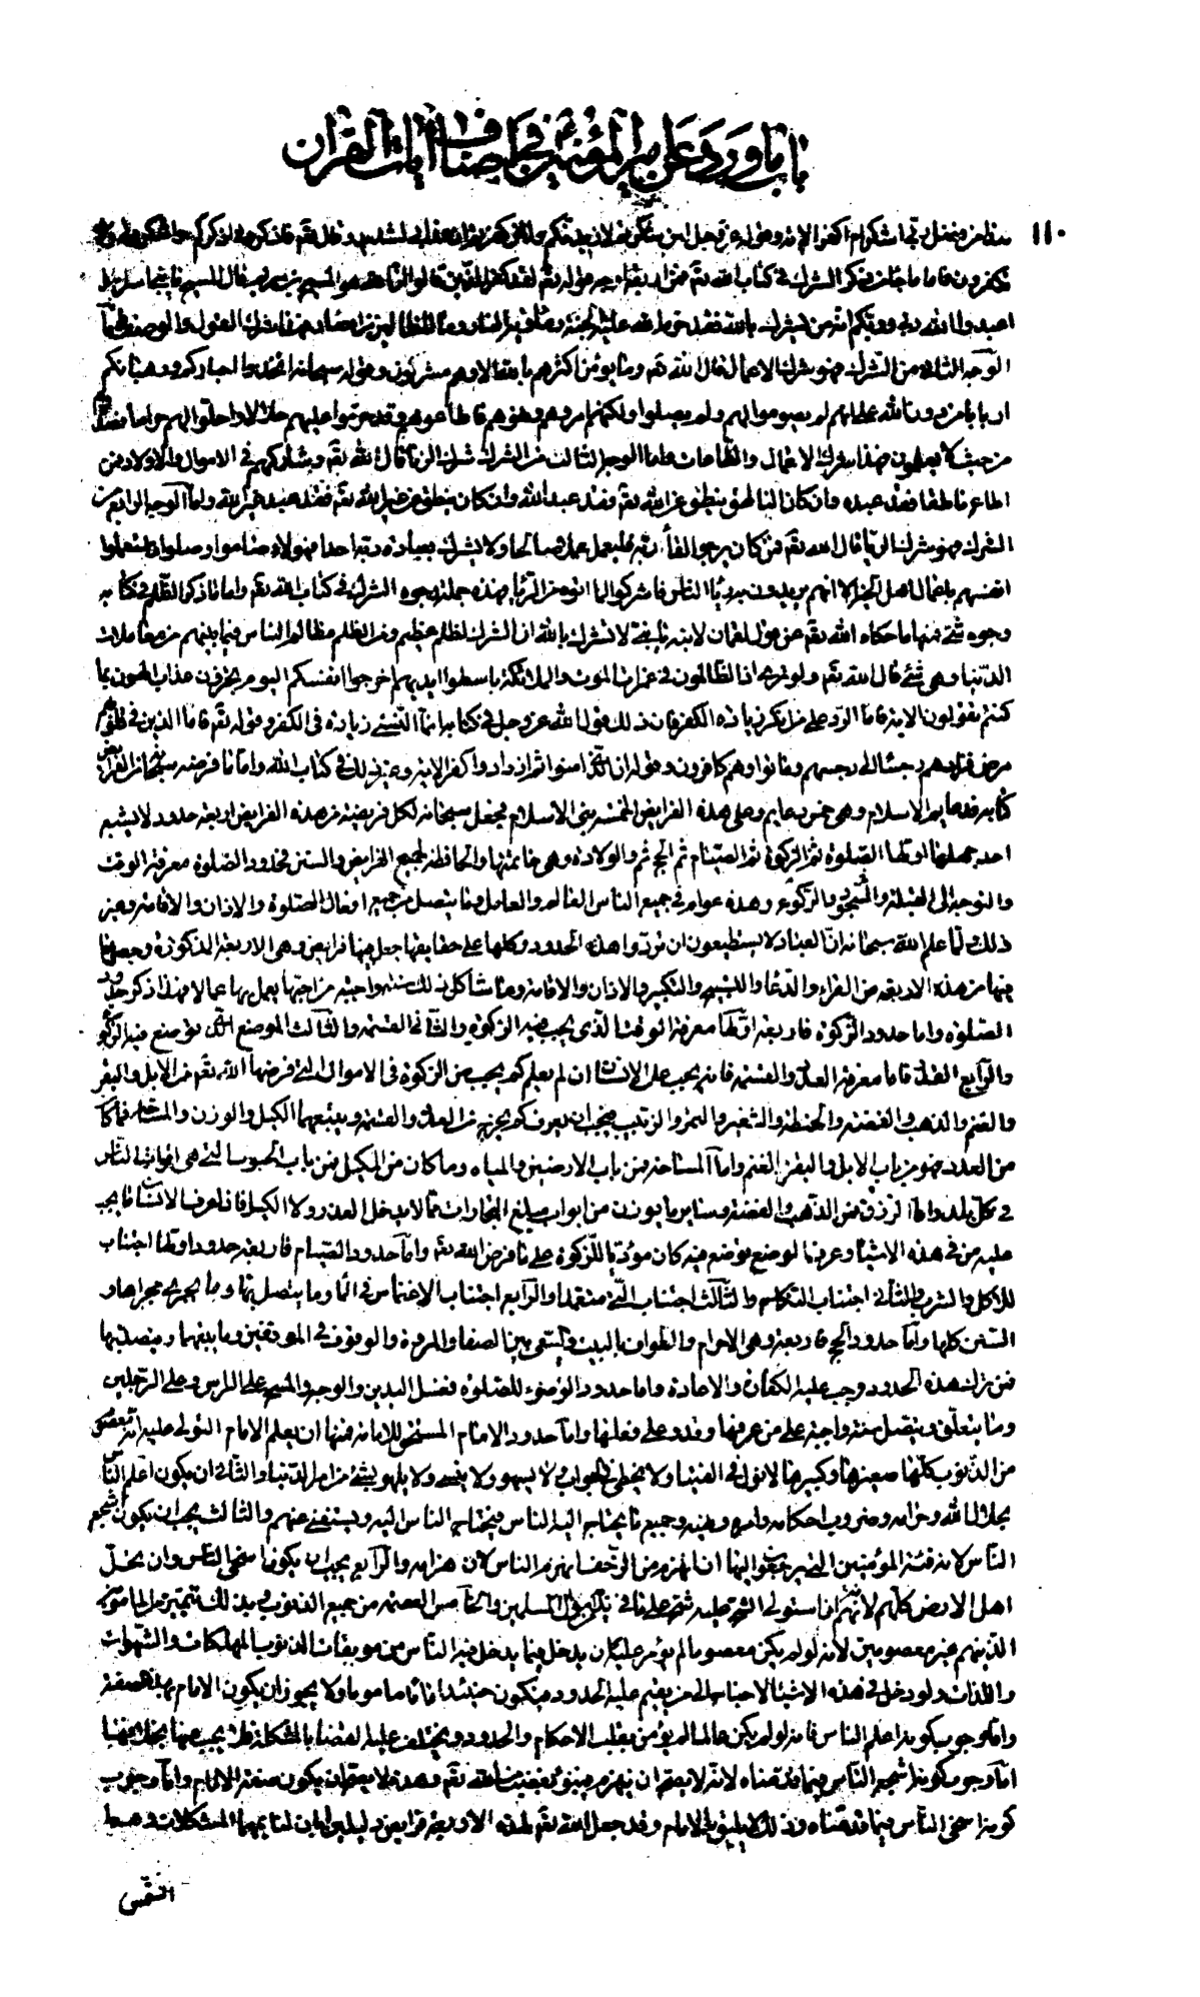 باب ما ورد عن امیر المؤمنین فی اصناف آیات القرآن
١١٠
هذا من فضل ربی لیبلونی ءاشکر ام اکفر الایة وقوله عز وجل لئن شکرتم لازیدنکم ولئن کفرتم ان عذابی لشدید وقال تعم فاذکرونی اذکرکم واشکروا لی ولا
تکفرون فاما ما جاء من ذکر الشرک فی کتاب الله تعم فمن اربعة اوجه قوله تعم لقد کفر الذین قالوا ان الله هو المسیح بن مریم وقال المسیح یا بنی اسرائیل
اعبدوا الله ربی وربکم انه من یشرک بالله فقد حرم الله علیه الجنة وماواه النار وما للظالمین من انصار فهذا شرک القول والوصف واما
الوجه الثانی من الشرک فهو شرک الاعمال قال الله تعم وما یؤمن اکثرهم بالله الا وهم مشرکون وقوله سبحانه اتخذوا احبارهم ورهبانهم
اربابا من دون الله علی انهم لم یصوموا لهم ولم یصلوا ولکنهم امروهم ونهوهم فاطاعوهم وقد حرموا علیهم حلالا واحلوا لهم حراما فعبدوهم
من حیث لا یعلمون فهذا شرک الاعمال والطاعات واما الوجه الثالث من الشرک شرک الزنا قال الله تعم وشارکهم فی الاموال والاولاد فمن
اطاع ناطقا فقد عبده وان کان الناطق ینطق عن الله تعم فقد عبد الله وان کان ینطق عن غیر الله تعم فقد عبد غیر الله واما الوجه الرابع من
الشرک فهو شرک الریا قال الله تعم فمن کان یرجو لقاء ربه فلیعمل عملا صالحا ولا یشرک بعبادة ربه احدا فهؤلاء صاموا وصلوا واستعملوا
انفسهم باعمال اهل الخیر الا انهم یریدون به ریاء الناس فاشرکوا لما اتوه من الریا فهذه جملة وجوه الشرک فی کتاب الله تعم واما ما ذکر من الظلم فی کتابه
وجوه شتی فمنها ما حکاه الله تعم عن قول لقمان لابنه یا بنی لا تشرک بالله ان الشرک لظلم عظیم ومن الظلم مظالم الناس فیما بینهم من معاملات
الدنیا وهی شتی قال الله تعم ولو تری اذ الظالمون فی غمرات الموت والملائکة باسطوا ایدیهم اخرجوا انفسکم الیوم تجزون عذاب الهون بما
کنتم تقولون الایة فاما الرد علی من انکر زیادة الکفر فمن ذلک قول الله عز وجل فی کتابه انما النسیء زیادة فی الکفر وقوله تعم فاما الذین فی قلوبهم
مرض فزادتهم رجسا الی رجسهم وماتوا وهم کافرون وقوله ان الذین امنوا ثم ازدادوا کفرا الایة وغیر ذلک فی کتاب الله واما ما فرضه سبحانه من الفرایض فی
کتابه فدعایم الاسلام وهی خمس دعایم وعلی هذه الفرایض الخمسة بنی الاسلام فجعل سبحانه لکل فریضة من هذه الفرایض اربعة حدود لا یسع
احد جهلها اولها الصلوة ثم الزکوة ثم الصیام ثم الحج ثم الولایة وهی خاتمتها والحافظة لجمیع الفرایض والسنن فحدود الصلوة معرفة الوقت
والتوجه الی القبلة والرکوع والسجود وهذه عوام فی جمیع الناس العالم والجاهل وما یتصل بها من جمیع افعال الصلوة والاذان والاقامة وغیر
ذلک لما علم الله سبحانه ان العباد لا یستطیعون ان یؤدوا هذه الحدود کلها علی حقایقها جعل فیها فرایض وهی الاربعة المذکورة وجعل ما
فیها من غیر هذه الاربعة من القراءة والدعاء والتسبیح والتکبیر والاذان والاقامة وما شاکل ذلک سنة واجبة من احبها یعمل بها اعمالا فهذا ذکر حدود
الصلوة واما حدود الزکوة فاربعة اولها معرفة الوقت الذی یجب فیه الزکوة والثانی القسمة والثالث الموضع الذی توضع فیه الزکوة
والرابع القدر فاما معرفة العدد والقسمة فانه یجب علی الانسان ان یعلم کم یجب من الزکوة فی الاموال التی فرضها الله تعم من الابل والبقر
والغنم والذهب والفضة والحنطة والشعیر والتمر والزبیب فیجب ان یعرف کم یخرج من العدد والقسمة ویتبعهما الکیل والوزن والمساحة فما کان
من العدد فهو من باب الابل والبقر والغنم واما المساحة فمن باب الارضین والمیاه وما کان من الکیل فمن باب الحبوب التی هی اقوات الناس
فی کل بلد واما الوزن فمن الذهب والفضة وسایر ما یوزن من ابواب مبلغ التجارات مما لا یدخل العدد ولا الکیل فاذا عرف الانسان ما یجب
علیه من فی هذه الاشیاء وعرف الموضع توضع فیه کان مؤدیا للزکوة علی ما فرض الله تعم واما حدود الصیام فاربعة حدود اولها اجتناب
الاکل والشرب والثانی اجتناب النکاح والثالث اجتناب القیء متعمدا والرابع اجتناب الاغتماس فی الماء وما یتصل بها وما یجری مجراها و
السنن کلها واما حدود الحج فاربعة وهی الاحرام والطواف بالبیت والسعی بین الصفا والمروة والوقوف فی الموقفین وما یتبعهما ویتصل بها
فمن ترک هذه الحدود وجب علیه الکفارة والاعادة واما حدود الوضوء للصلوة فغسل الیدین والوجه والمسح علی الراس وعلی الرجلین
وما یتعلق ویتصل سنة واجبة علی من عرفها وقدر علی فعلها واما حدود الامام المستحق للامامة فمنها ان یعلم الامام المتولی علیه انه معصوم
من الذنوب کلها صغیرها وکبیرها لا یزل فی الفتیا ولا یخطی فی الجواب ولا یسهو ولا ینسی ولا یلهو بشیء من امر الدنیا والثانی ان یکون اعلم الناس
بحلال الله وحرامه وضروب احکامه وامره ونهیه وجمیع ما یحتاج الیه الناس فیحتاج الناس الیه ویستغنی عنهم والثالث یجب ان یکون اشجع
الناس لانه فئة المؤمنین التی یرجعون الیها ان انهزم من الزحف انهزم الناس لانهزامه والرابع یجب ان یکون اسخی الناس وان بخل
اهل الارض کلهم لانه ان استولی الشح علیه شح علی ما فی یدیه من اموال المسلمین والخامس العصمة من جمیع الذنوب وبذلک یتمیز عن المامومین
الذین هم غیر معصومین لانه لو لم یکن معصوما لم یؤمن علیه ان یدخل فیما یدخل فیه الناس من موبقات الذنوب المهلکات والشهوات
واللذات ولو دخل فی هذه الاشیاء لاحتاج الی من یقیم علیه الحدود فیکون حینئذ اماما ماموما ولا یجوز ان یکون الامام بهذه الصفة
واما وجوب کونه اعلم الناس فانه لو لم یکن عالما لم یؤمن یقلب الاحکام والحدود ویختلف علیه القضایا المشکلة فلا یجیب عنها بخلافها
اما وجوب کونه اشجع الناس فبما قدمناه لانه لا یصح ان ینهزم فیبوء بغضب من الله تعم وهذه لا یصح ان یکون صفة الامام واما وجوب
کونه اسخی الناس فبما قدمناه وذلک لا یلیق بالامام وقد جعل الله تعم لهذه الاربعة فرایض دلیلین ابان لنا بهما المشکلات وهما
الشمس